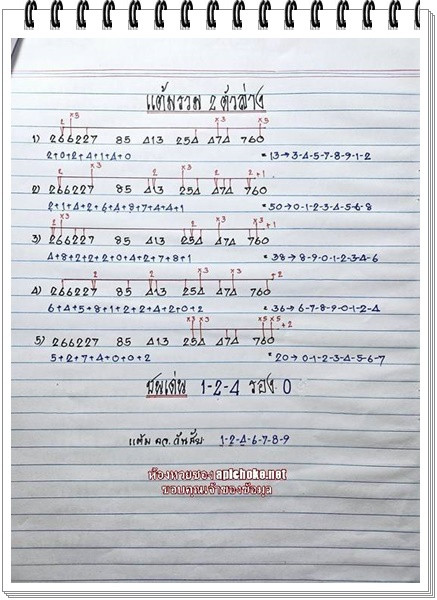 แต้มรวม 2 ตัวล่าง
x5
2 x3 x5
1) 266227 85 413 254 474 760
2+0+2+4+1+4+0 = 13 → 3-4-5-7-8-9-1-2
2 x3 2 x3 2 +1
2) 266227 85 413 254 474 760
2+1+4+2+6+4+8+7+4+4+1 = 50 → 0-1-2-3-4-5-6-8
2 x3 2 x3 +1
3) 266227 85 413 254 474 760
4+8+2+2+2+0+4+2+7+8+1 = 38 → 8-9-0-1-2-3-4-6
2 2 x3 x3 +2
4) 266227 85 413 254 474 760
6+4+5+8+1+2+2+4+2+0+2 = 36 → 6-7-8-9-0-1-2-4
x3 x3 x5 x5 +2
5) 266227 85 413 254 474 760
5+2+7+4+0+0+2 = 20 → 0-1-2-3-4-5-6-7
1-2-4 รอง 0
แต้ม 1-2-4-6-7-8-9
ห้องหวยซอง apichoke.net
ขอบคุณเจ้าของข้อมูล